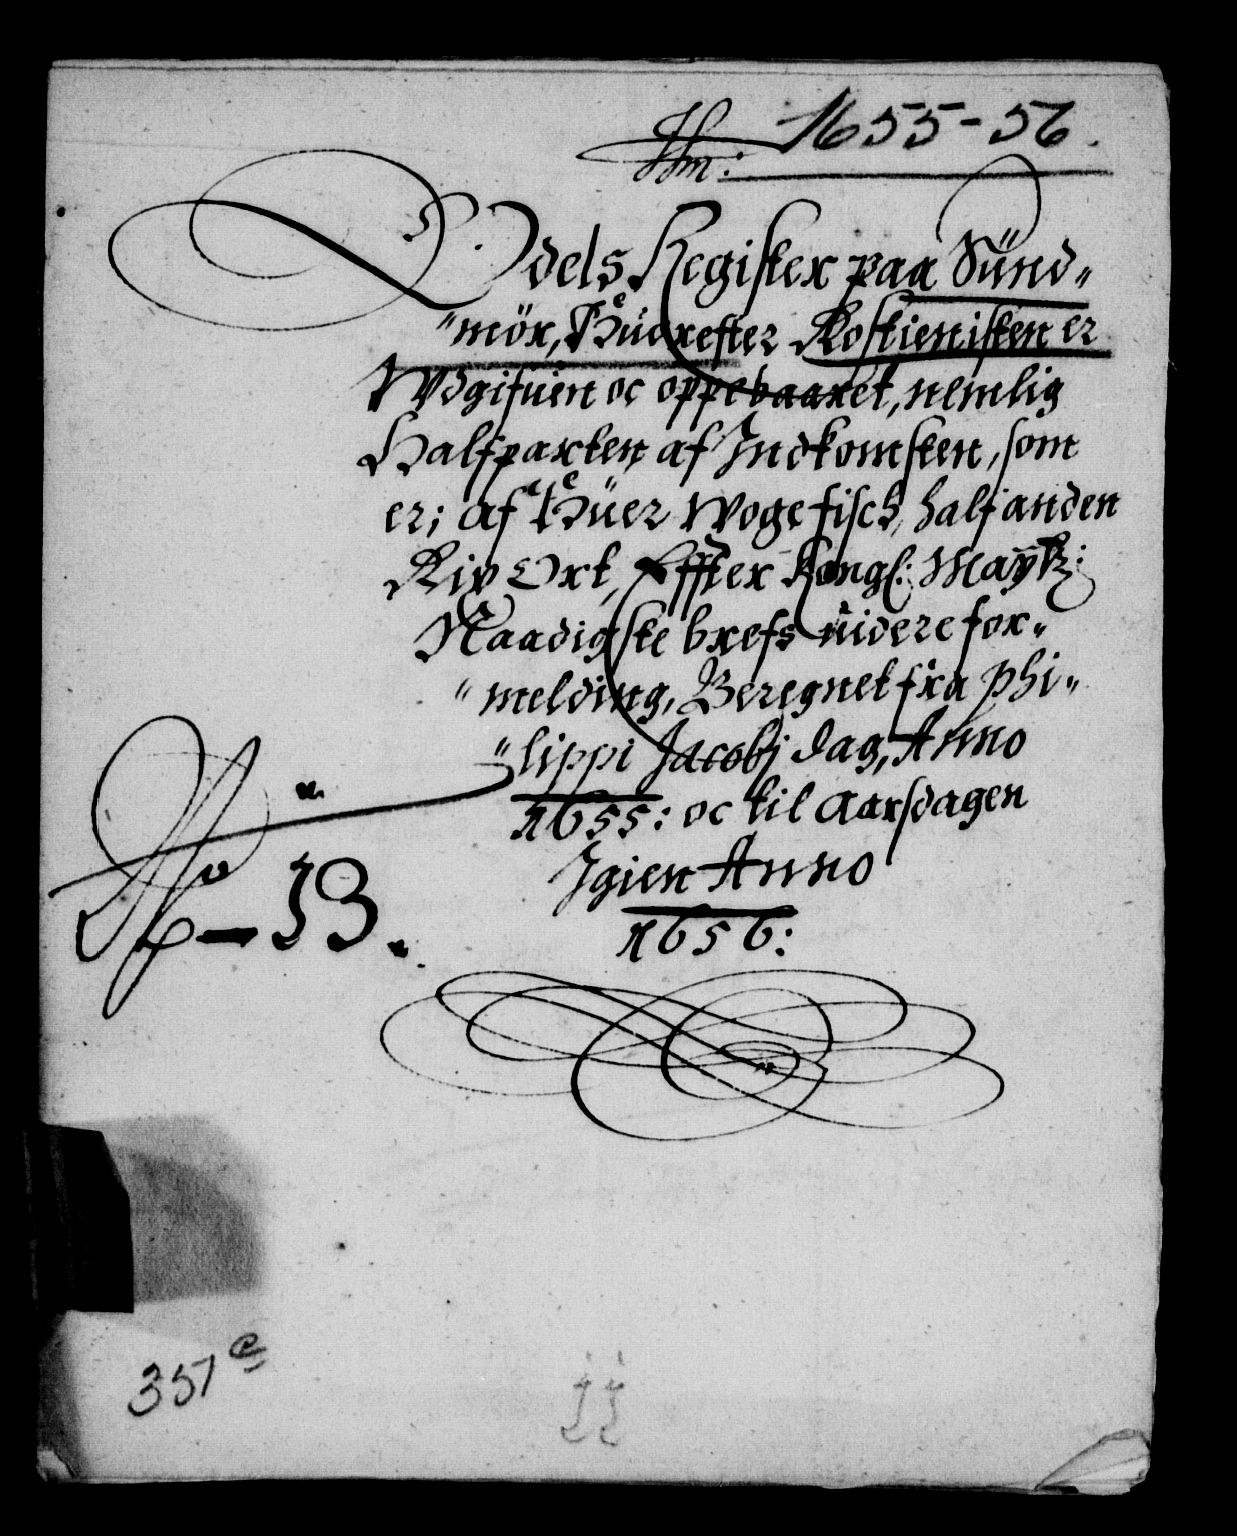 1655-56.
Hm:
Odels Register paa Sünd-
mör, Huorefter Rostienisten er
Udgifuen oc oppebaaret, nemlig
Halfparten af Indkomsten, som
er; af Huer Woge fisch, half anden
Rix Ort, Effter Kongl: Maytz:
Naadigste brefs uidere for-
melding, Beregnet fra Phi-
lippi Jacobj dag, Anno
1655: oc til Aarsdagen
Igien Anno
1656:
No - 53.
357